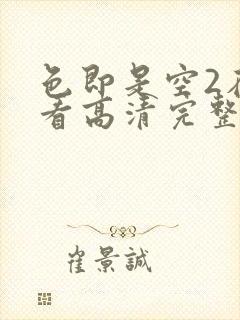 色即是空2在
看高清完整
崔景誠